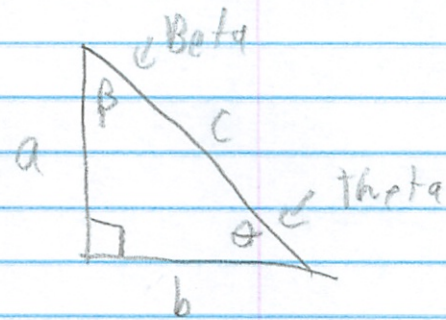 Beta
β
c
a
theta
θ
b